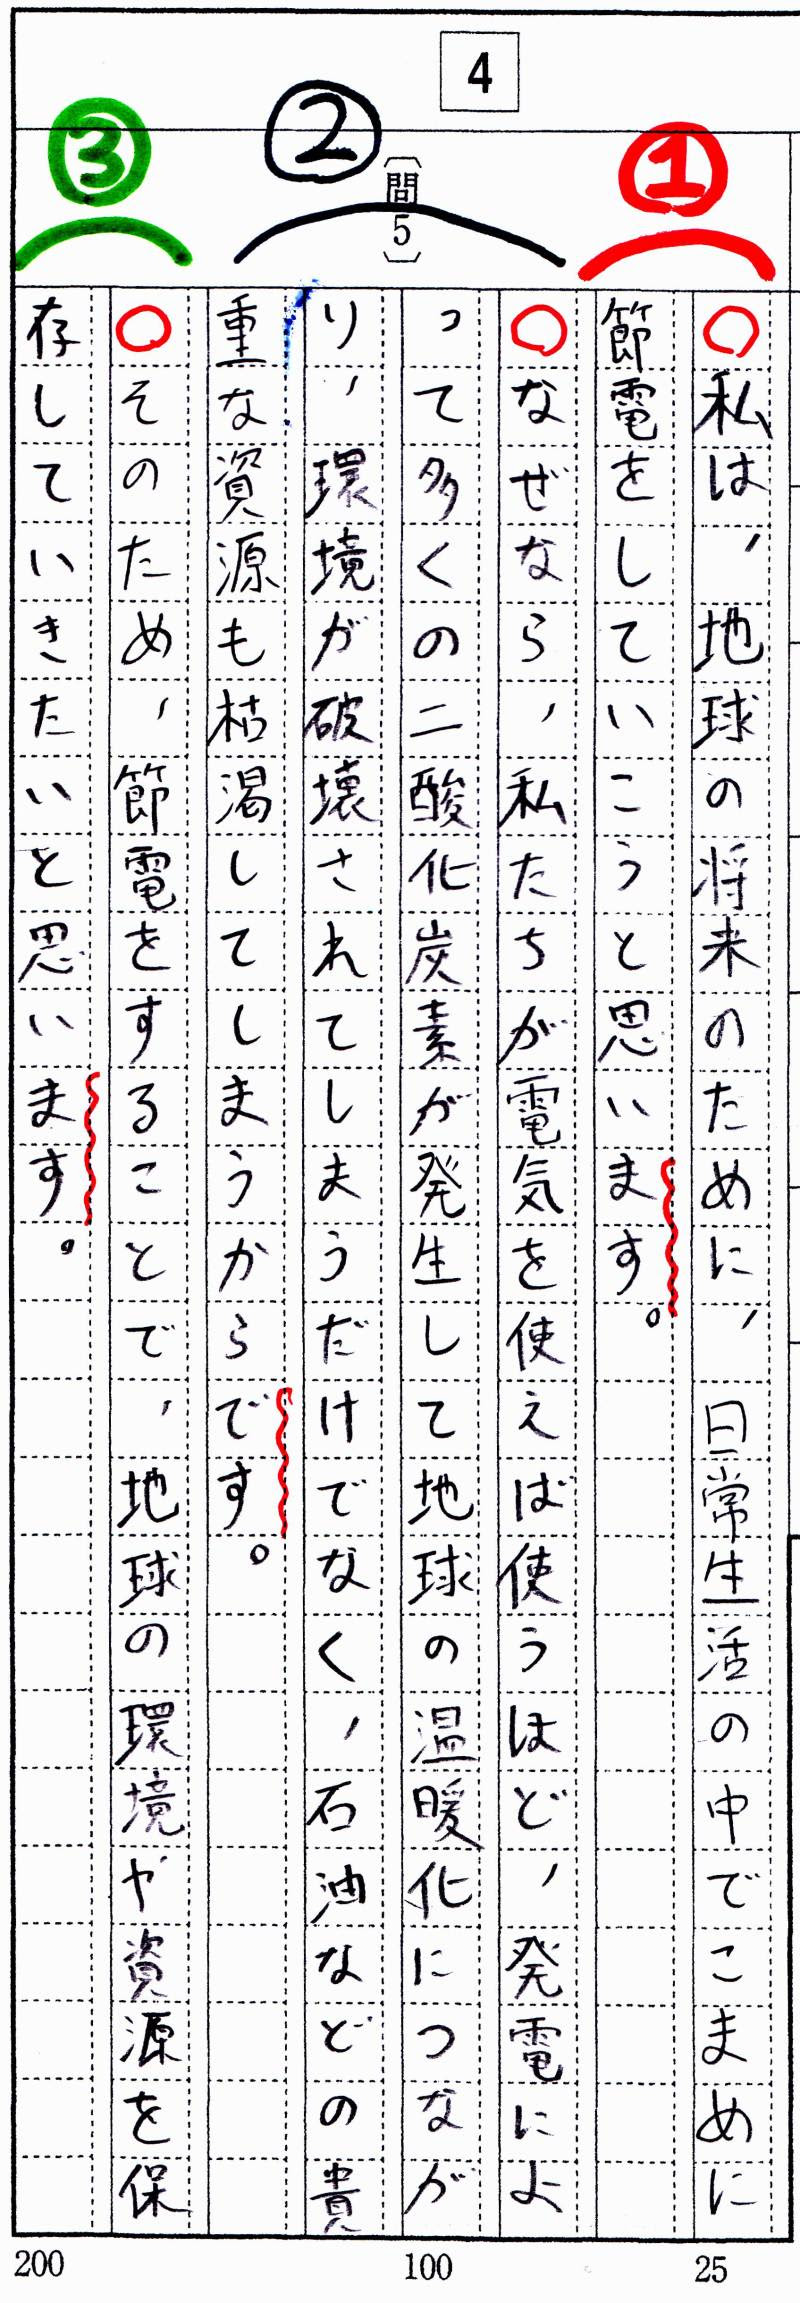 4
〔問5〕
①
②
③
〇私は，地球の将来のために，日常生活の中でこまめに
節電をしていこうと思います。
〇なぜなら，私たちが電気を使えば使うほど，発電によ
って多くの二酸化炭素が発生して地球の温暖化につなが
り，環境が破壊されてしまうだけでなく，石油などの貴
重な資源も枯渇してしまうからです。
〇そのため，節電をすることで，地球の環境や資源を保
存していきたいと思います。
25
100
200